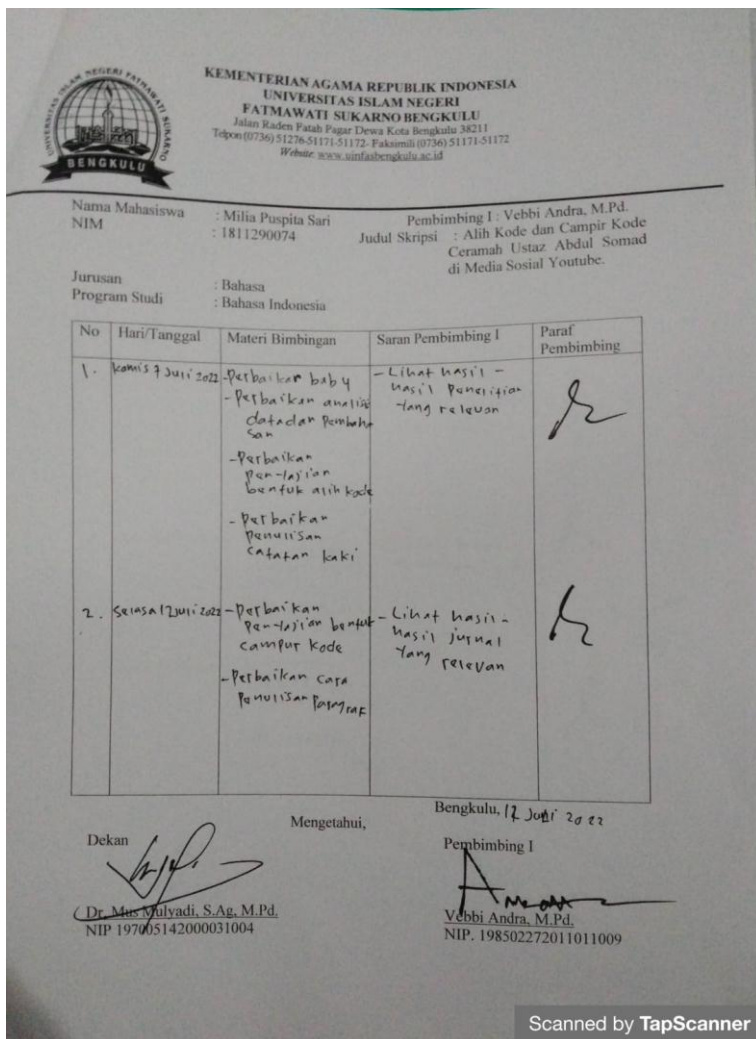 UNIVERSITAS ISLAM NEGERI FATMAWATI SUKARNO
BENGKULU
KEMENTERIAN AGAMA REPUBLIK INDONESIA
UNIVERSITAS ISLAM NEGERI
FATMAWATI SUKARNO BENGKULU
Jalan Raden Fatah Pagar Dewa Kota Bengkulu 38211
Telpon (0736) 51276-51171-51172- Faksimili (0736) 51171-51172
Website: www.uinfasbengkulu.ac.id
Nama Mahasiswa : Milia Puspita Sari
NIM : 1811290074
Jurusan : Bahasa
Program Studi : Bahasa Indonesia
Pembimbing I : Vebbi Andra, M.Pd.
Judul Skripsi : Alih Kode dan Campir Kode
Ceramah Ustaz Abdul Somad
di Media Sosial Youtube.
No Hari/Tanggal Materi Bimbingan Saran Pembimbing I Paraf
Pembimbing
1. Kamis 7 Juli 2022
- Perbaikan bab 4
- Perbaikan analisis
data dan Pembaha
san
- Perbaikan
Penyajian
bentuk alih kode
- Perbaikan
Penulisan
catatan kaki
- Lihat hasil -
hasil Penelitian
yang relevan
2. Selasa 12 Juli 2022
- Perbaikan
Penyajian bentuk
campur kode
- Perbaikan cara
Penulisan Paragraf
- Lihat hasil -
hasil jurnal
yang relevan
Bengkulu, 12 Juli 2022
Mengetahui,
Dekan
Dr. Mus Mulyadi, S.Ag, M.Pd.
NIP 197005142000031004
Pembimbing I
Vebbi Andra, M.Pd.
NIP. 198502272011011009
Scanned by TapScanner